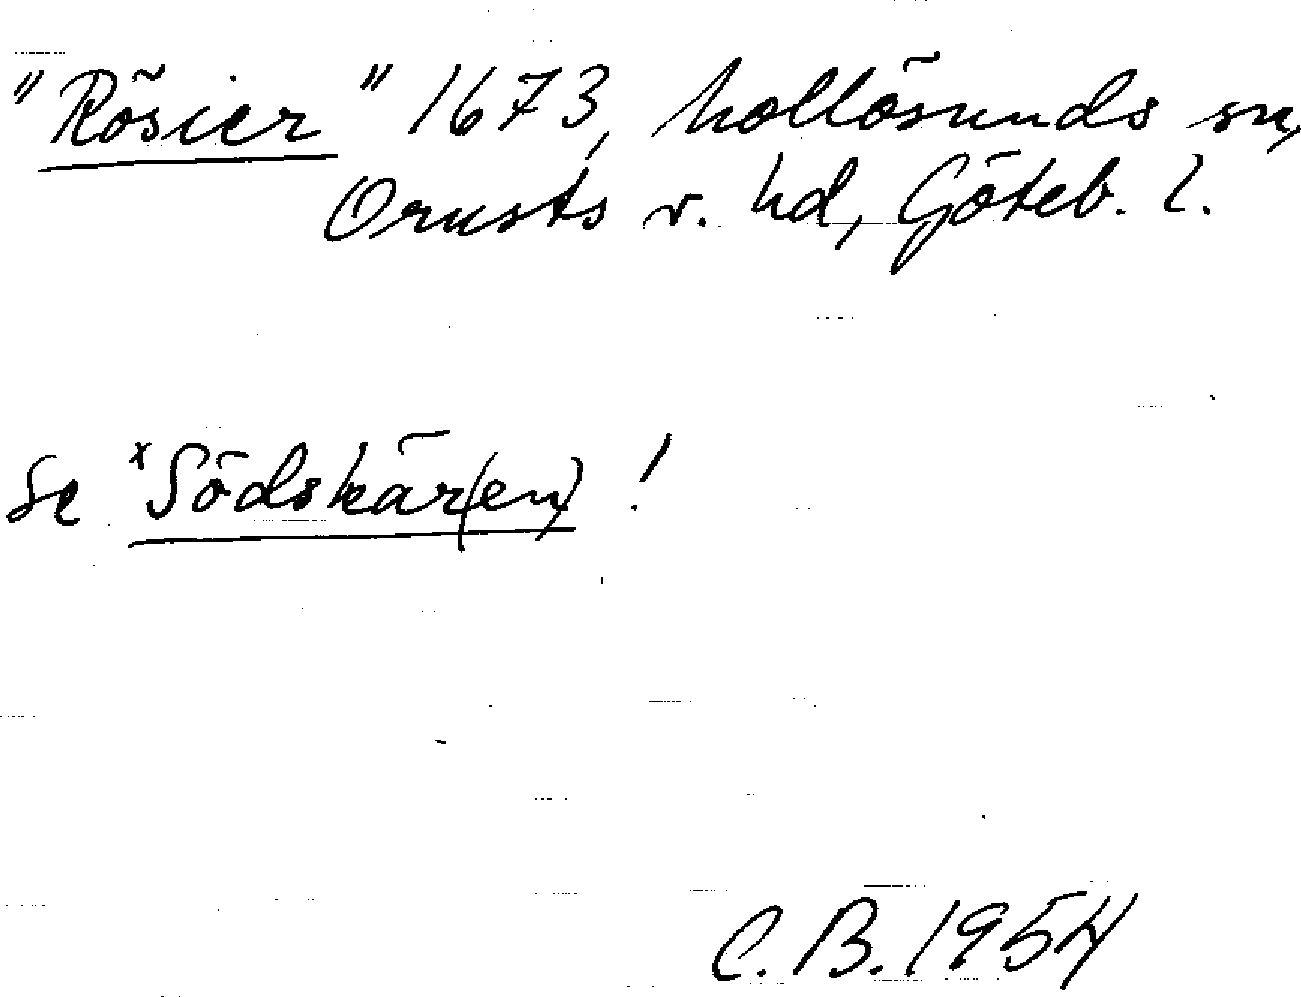 "Rösier" 1673, Mollösunds sn,
Orusts v. hd, Göteb. l.
Se *Södskär(en)!
C.B. 1954